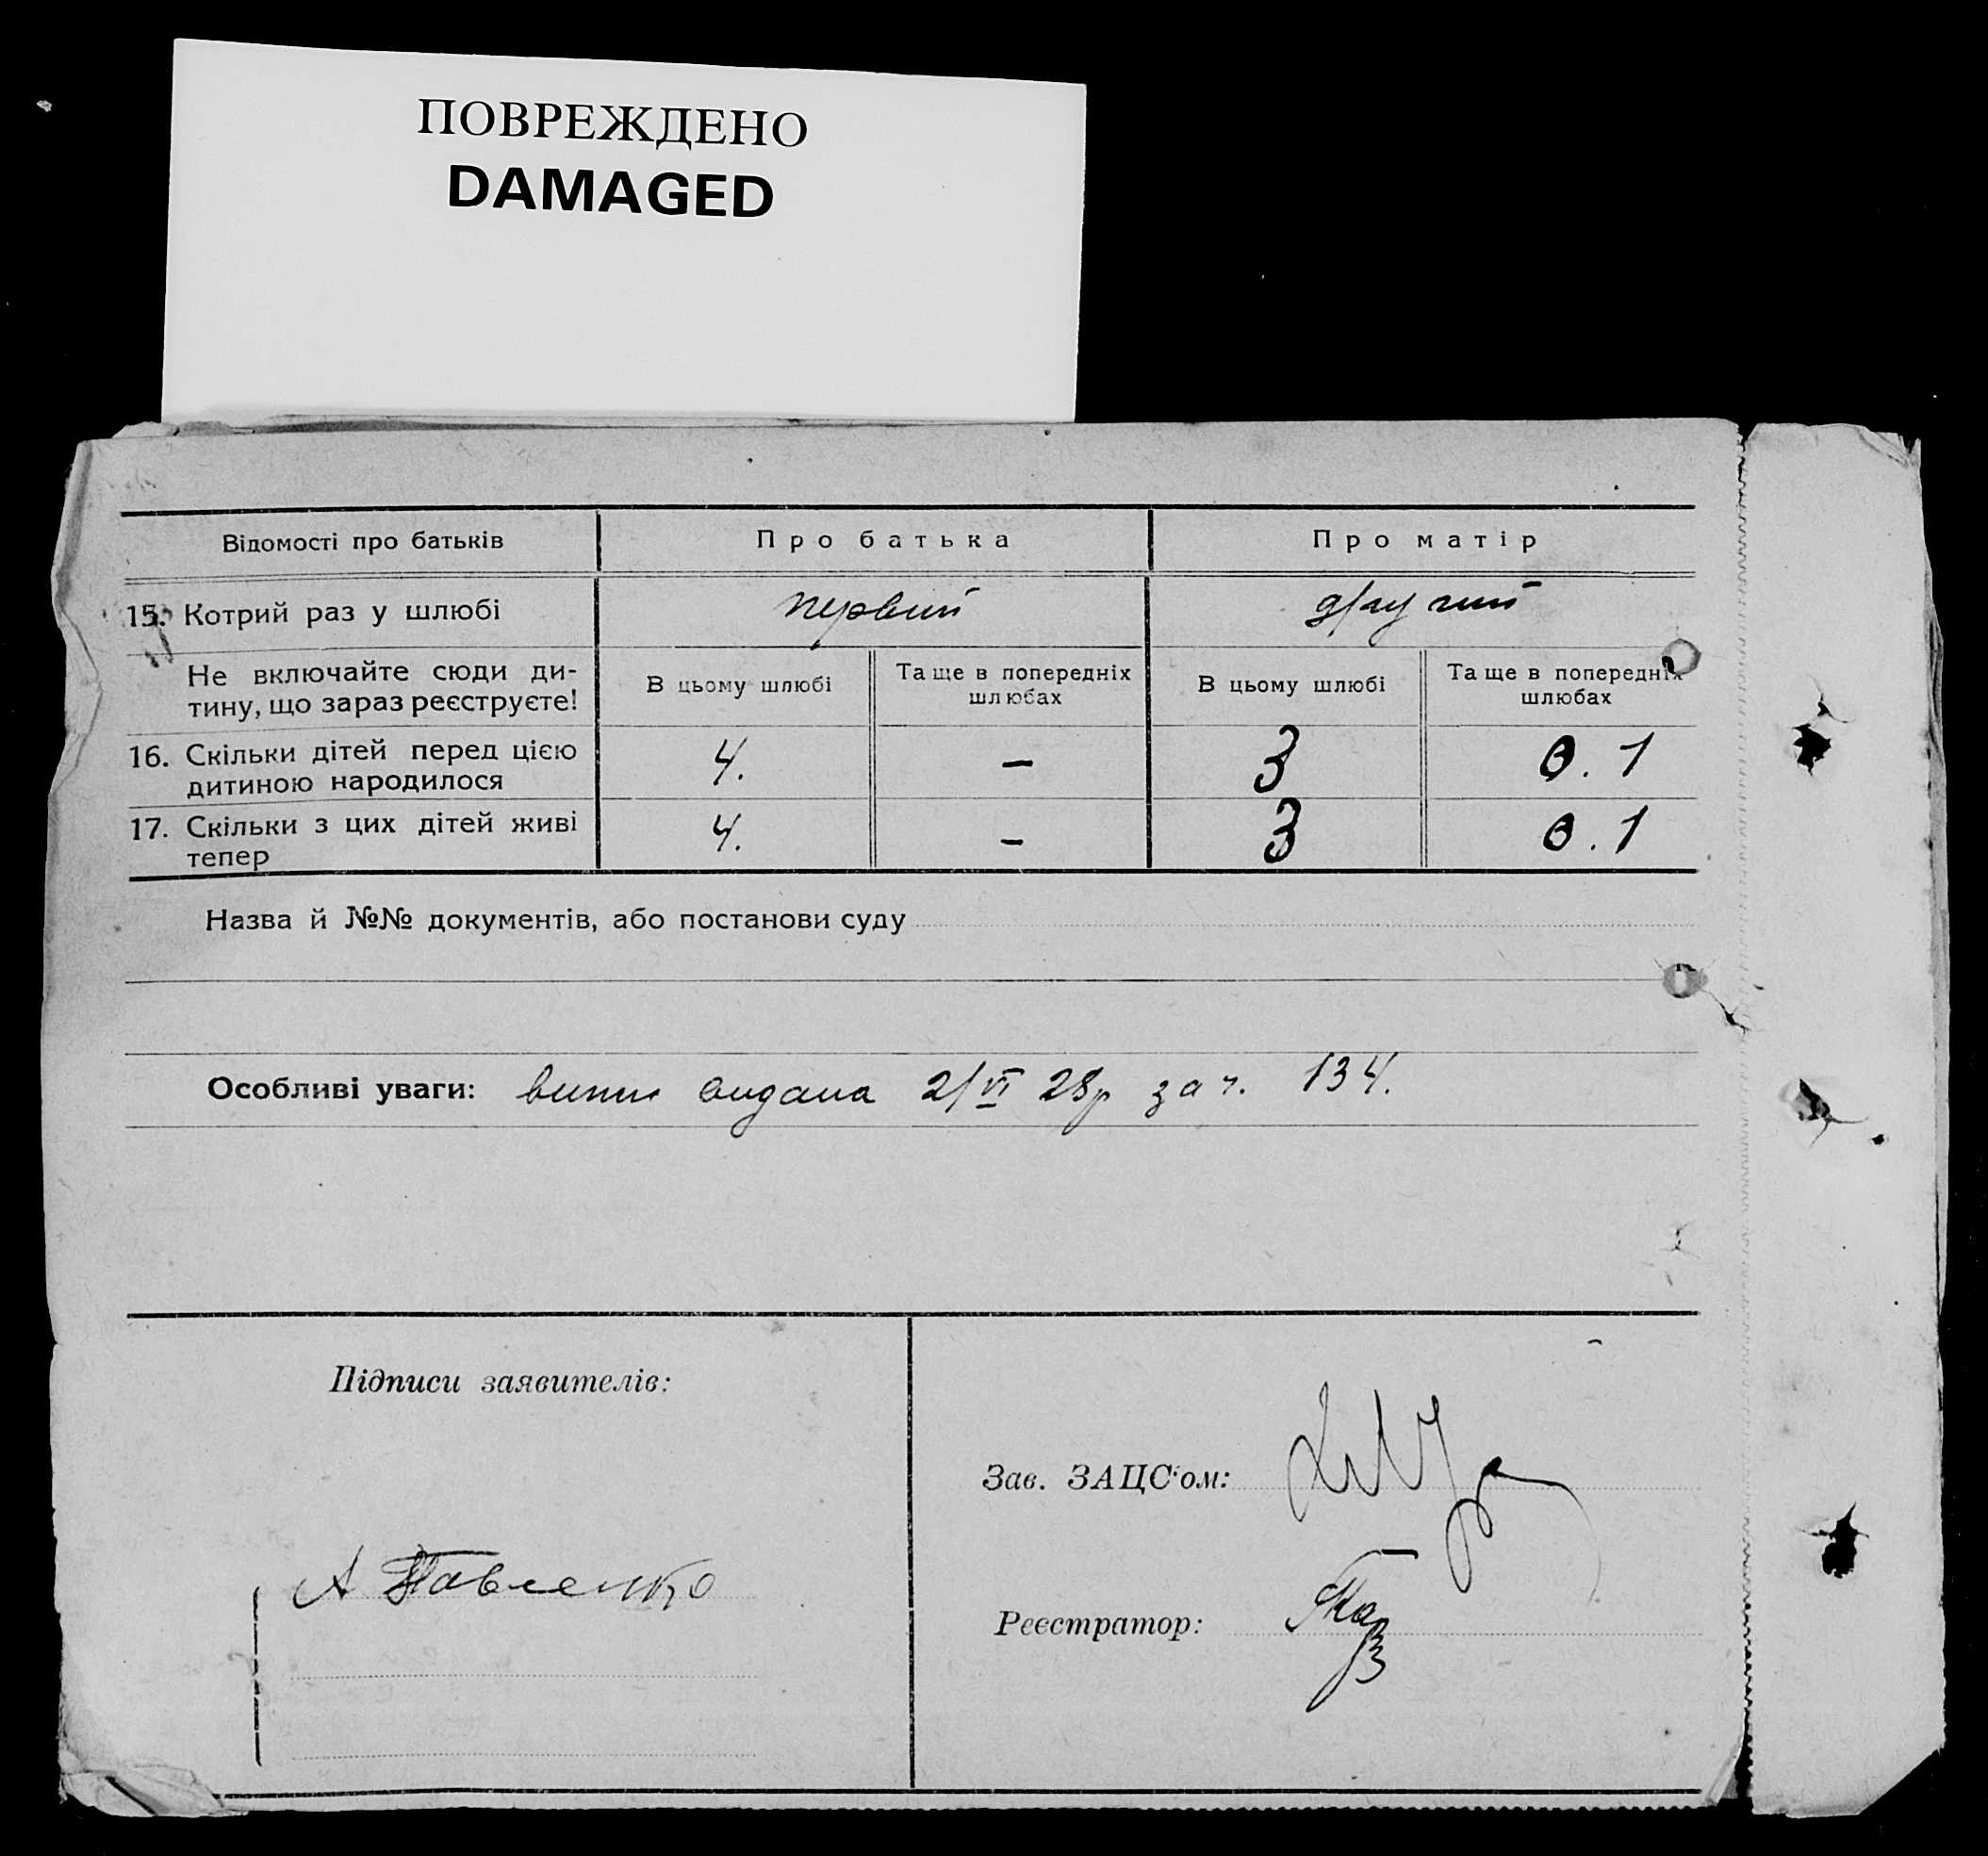 ПОВРЕЖДЕНО
DAMAGED
Відомості про батьків
Про батька
Про матір
15. Котрий раз у шлюбі
первий
другий
Не включайте сюди ди-
тину, що зараз реєструєте!
В цьому шлюбі
Та ще в попередніх
шлюбах
В цьому шлюбі
Та ще в попередніх
шлюбах
16. Скільки дітей перед цією
дитиною народилося
4.
–
3
0.1
17. Скільки з цих дітей живі
тепер
4.
–
3
0.1
Назва й №№ документів, або постанови суду
Особливі уваги: видана 2/VI 28р за ч. 134.
Підписи заявителів:
Зав. ЗАЦС'ом:
А Павленко
Реєстратор: